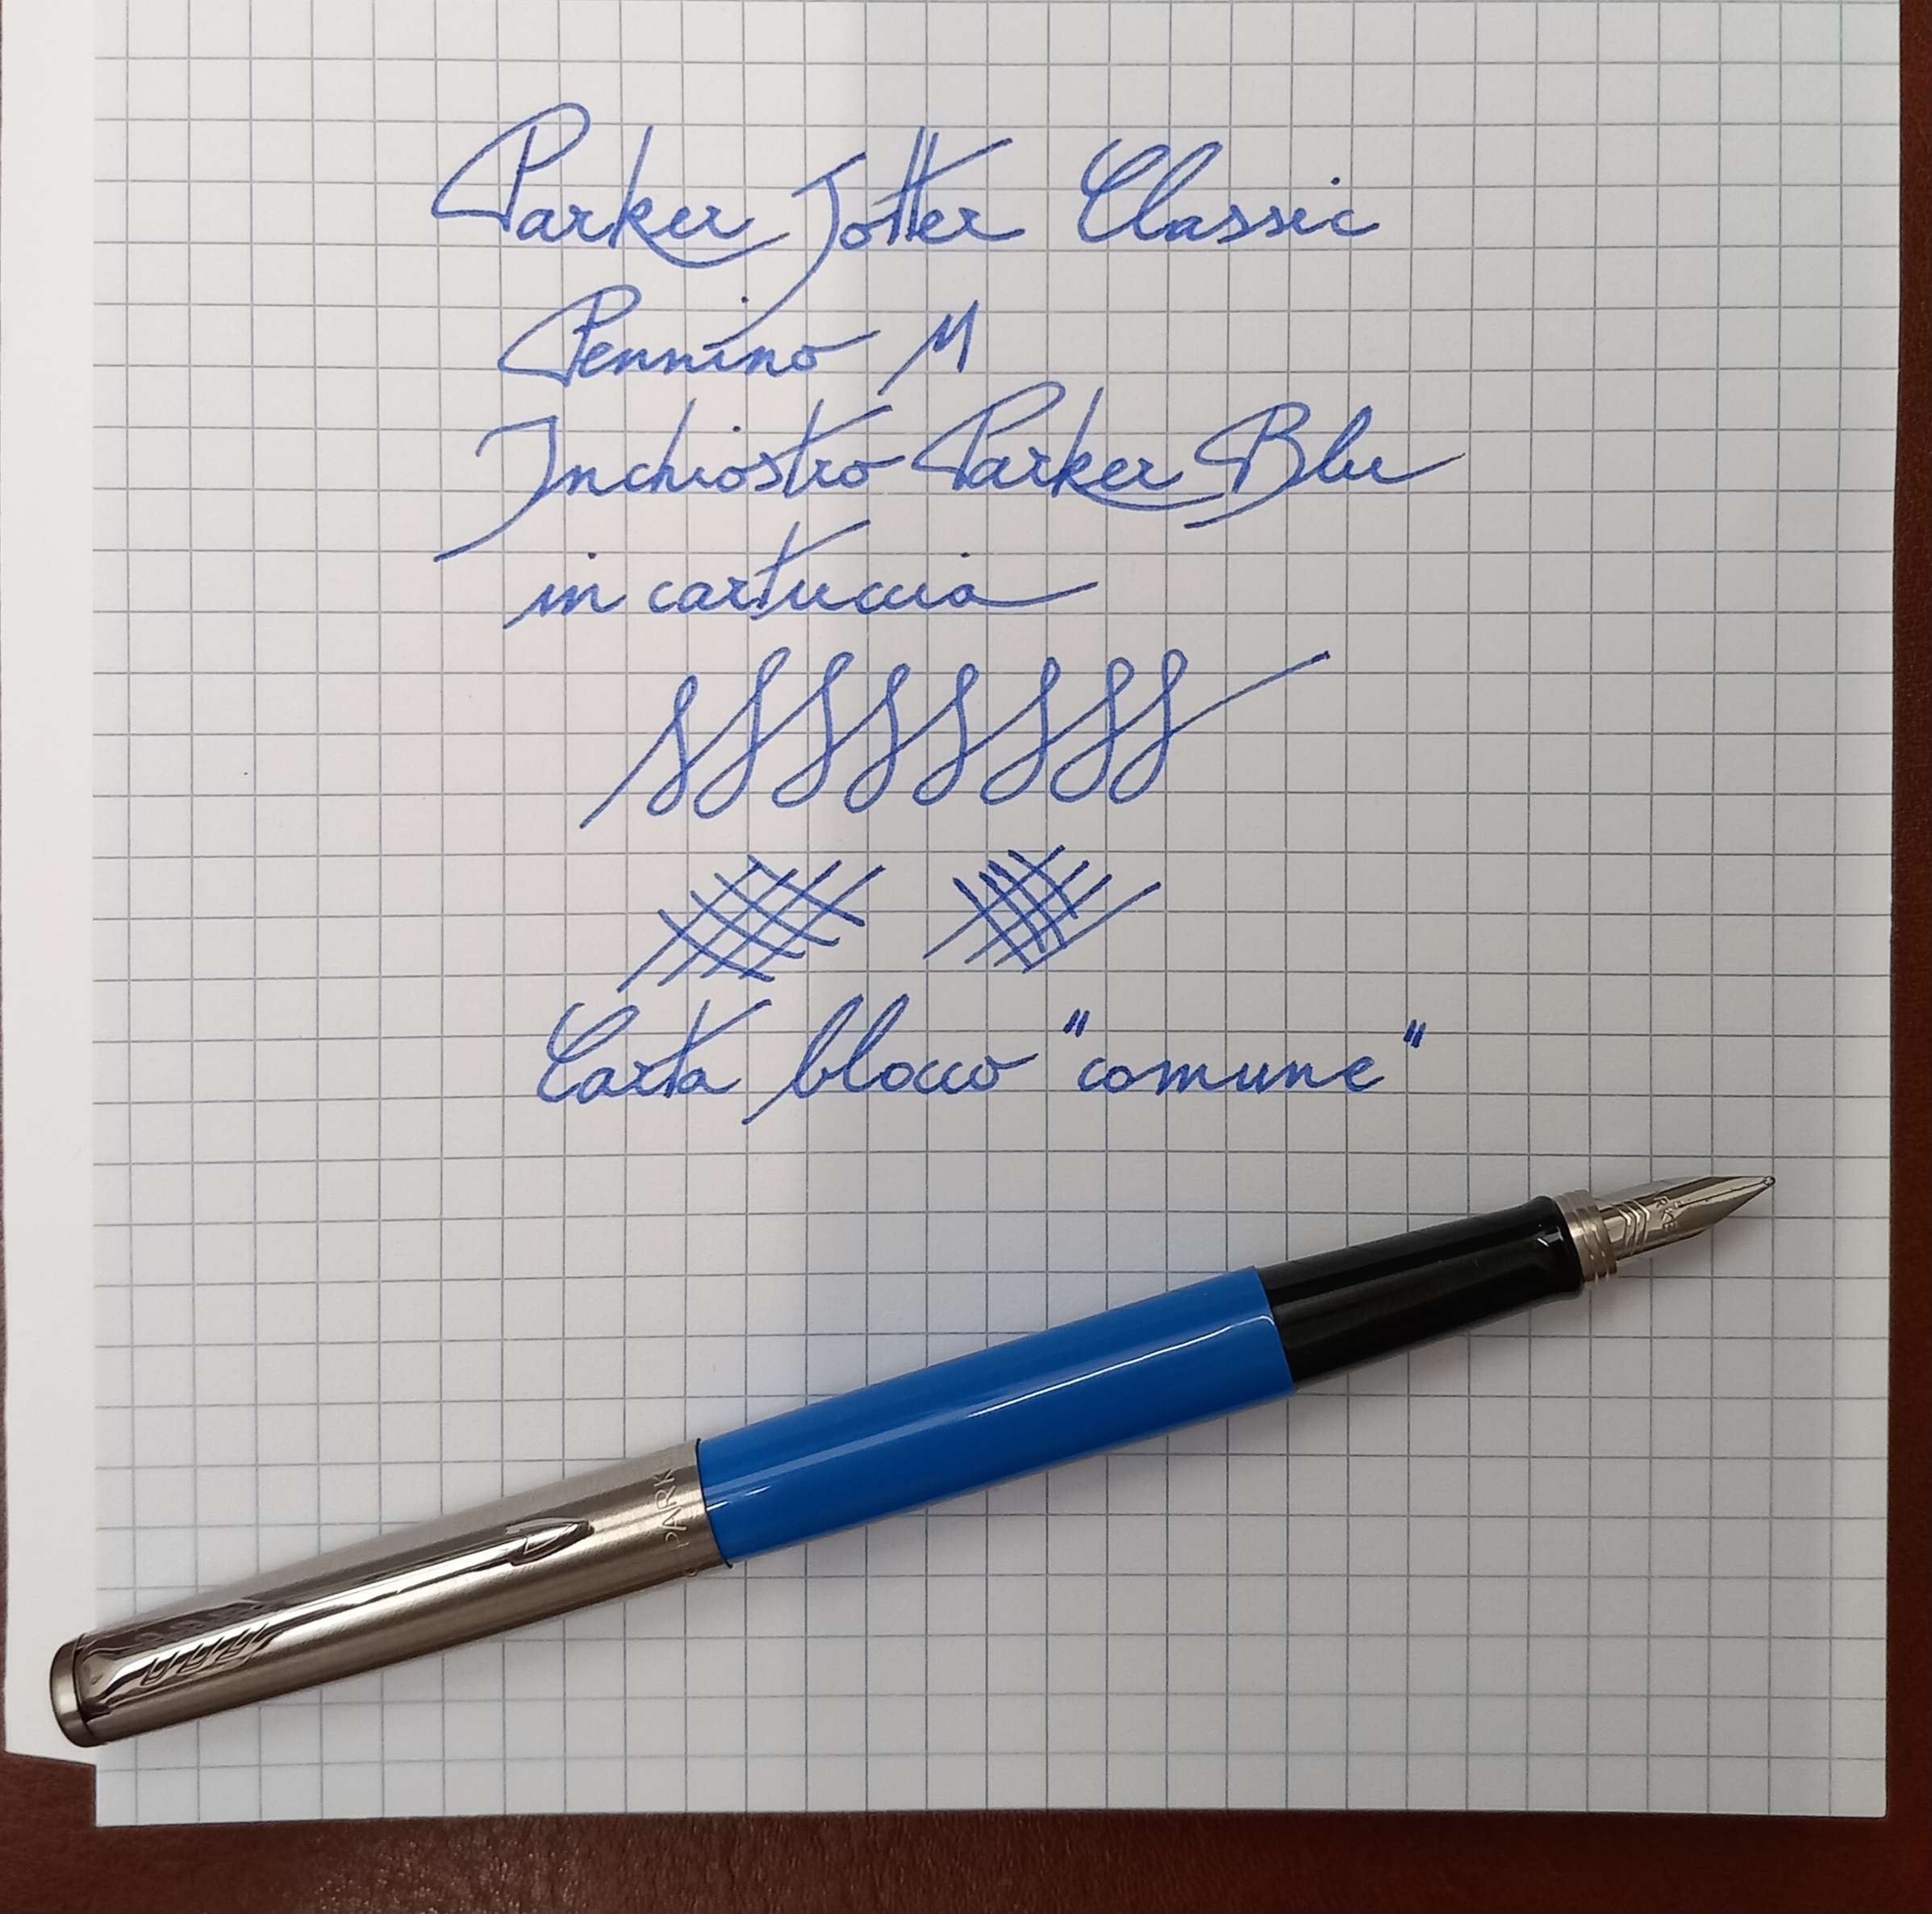 Parker Jotter Classic
Pennino M
Inchiostro Parker Blu
in cartuccia
Carta blocco "comune"
PARK
RKE